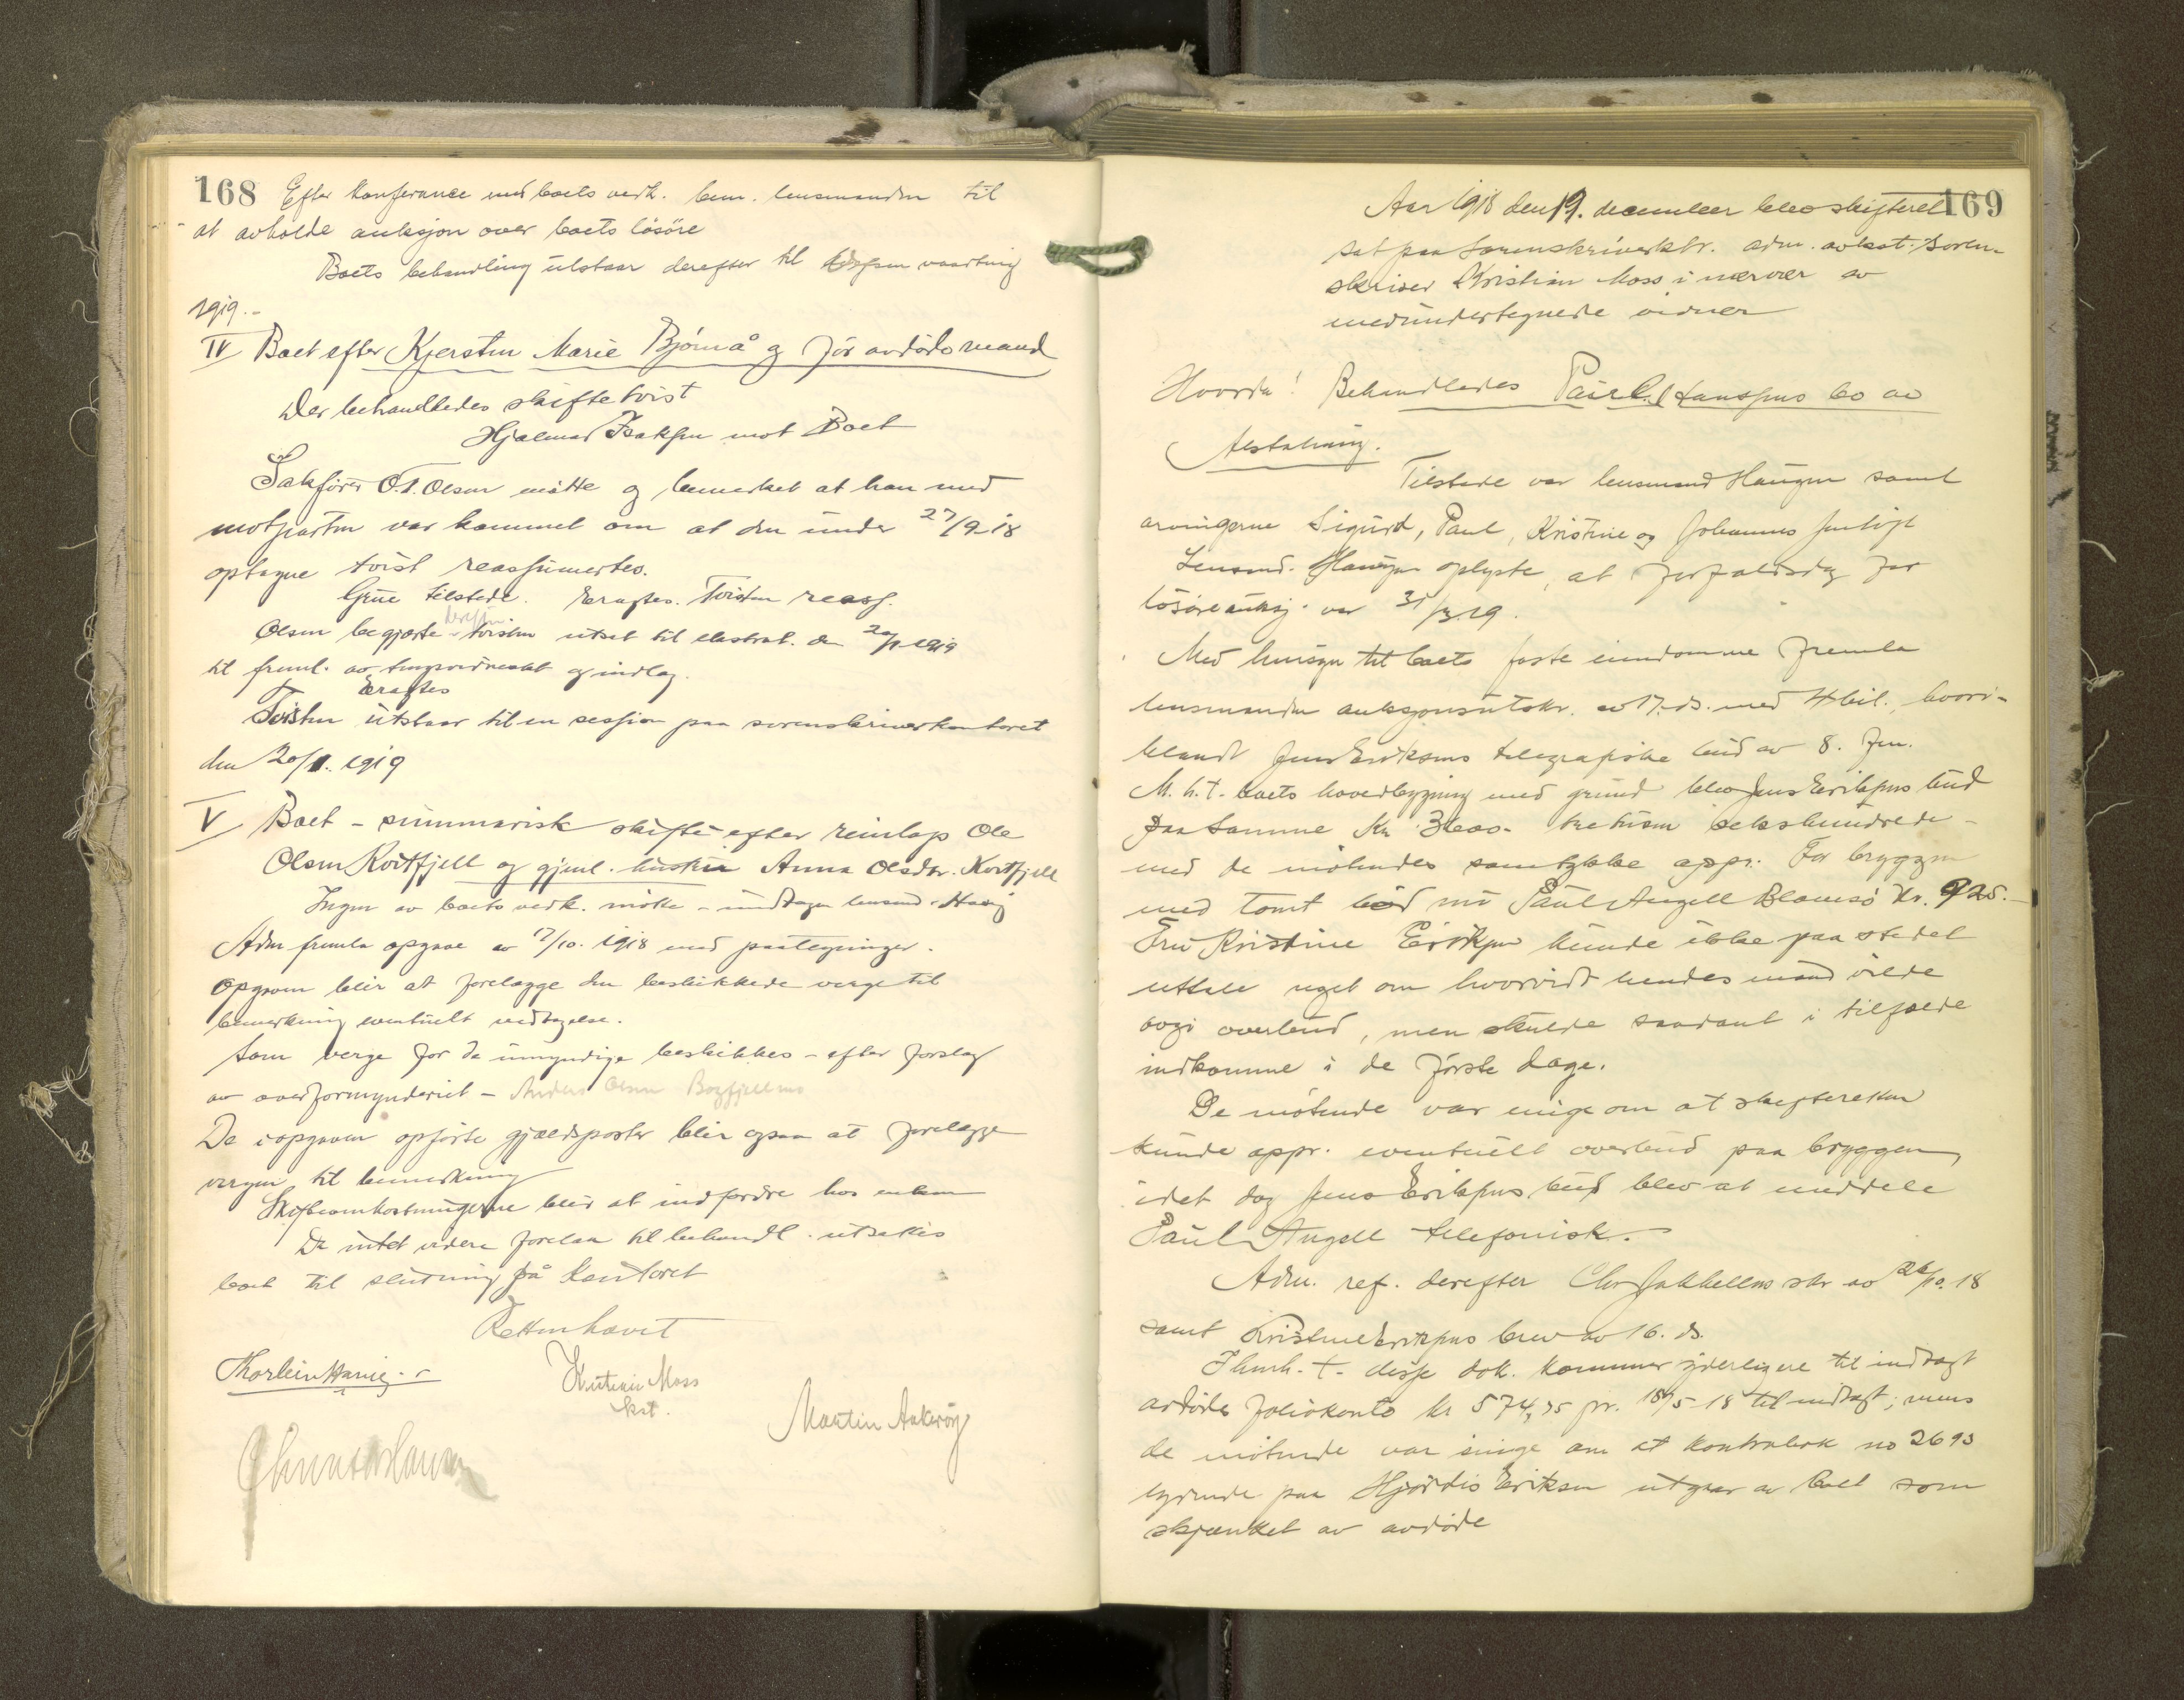 168 Efter konferance med boets vedk. bem. lensmanden til
at avholde auksjon over boets lösöre
Boets behandling utstaar derefter til vaarting
1919.-
IV Boet efter Kjersten Marie Bjørnå og før avdöde mand
Der behandledes skiftetvist
Hjalmar Isaksen mot Boet
Sakfører O.T. Olsen mötte og bemerket at han med
motparten var kommet om at den under 27/9-18
optagne tvist reassumertes.
Grue tilstede. Eragtes. Tvisten reass.
Olsen begjærte tvisten utsat til ekstrat. den 20/1-1919
til freml. av og indlæg.
Eragtes
Tvisten utstaar til en session paa sorenskriverkontoret
den 20/1. 1919
V Boet - summarisk skifte efter reinlap Ole
Olsen Kortfjell og gjenl. hustru Anna Olsdtr. Kortfjell
Ingen av boets vedk. mötte - undtagen lensmd. Havig
Adm fremla opgave av 17/10. 1918 med paategninger.
Opgaven blir at forelægge den beskikkede verge til
bemerkning eventuelt vedtagelse.
Som verge for de umyndige beskikkes - efter forslag
av overformynderiet - Anders Olsen
De i opgaven opförte gjældsposter blir ogsaa at forelægge
vergen til bemerkning
Skifteomkostningerne blir at indfordre hos enken
Da intet videre forelaa til behandl. utsattes
boet til slutning på kontoret
Retten hævet
Thorleiv Havig
Kristian Moss
kst.
Martin Ankerøy
169
Aar 1918 den 19. december blev skifteret
sat paa Sorenskriverktr. adm. av kst. Soren-
skriver Kristian Moss i nærvær av
medundertegnede vidner
Hvorda! Behandledes Paul Hansens bo av
Alstahaug.
Tilstede var lensmand Haugen samt
arvingerne Sigurd, Paul, Kristine og Johannes
Lensmd. Haugen oplyste, at forfaldsdag for
lösöreauksj. var 31/3.19.
Med hensyn til boets faste eiendomme fremla
lensmanden auksjonsutskr. av 17. ds. med 4 bil., hvori-
blandt Jens Eriksens telegrafiske bud av 8. Jen.
M. h. t. boets hovedbygning med grund blev Jens Eriksens bud
paa samme Kr 3600.- tretusen sekshundrede -
med de mötendes samtykke appr. For bryggen
med tomt böd nu Paul Angell Blomsö kr. 925.-
Fru Kristine Eriksen kunde ikke paa stedet
uttale noget om hvorvidt hendes mand vilde
avgi overbud, men skulde saadant i tilfælde
indkomme i de förste dage.
De mötende var enige om at skifteretten
kunde appr. eventuelt overbud paa bryggen,
idet dog Jens Eriksens bud blev at meddele
Paul Angell telefonisk.
Adm. ref. derefter Chr Jakhellns skr av 26/10.18
samt Kristine Eriksens brev av 16. ds.
I henh. t. disse dok. kommer yderligere til indtægt
avdödes foliokonto kr 574,35 pr. 18/5-18 til indtægt; mens
de mötende var enige om at kontrabok no 2693
lydende paa Hjördis Eriksen utgaar av boet som
skjænket av avdöde